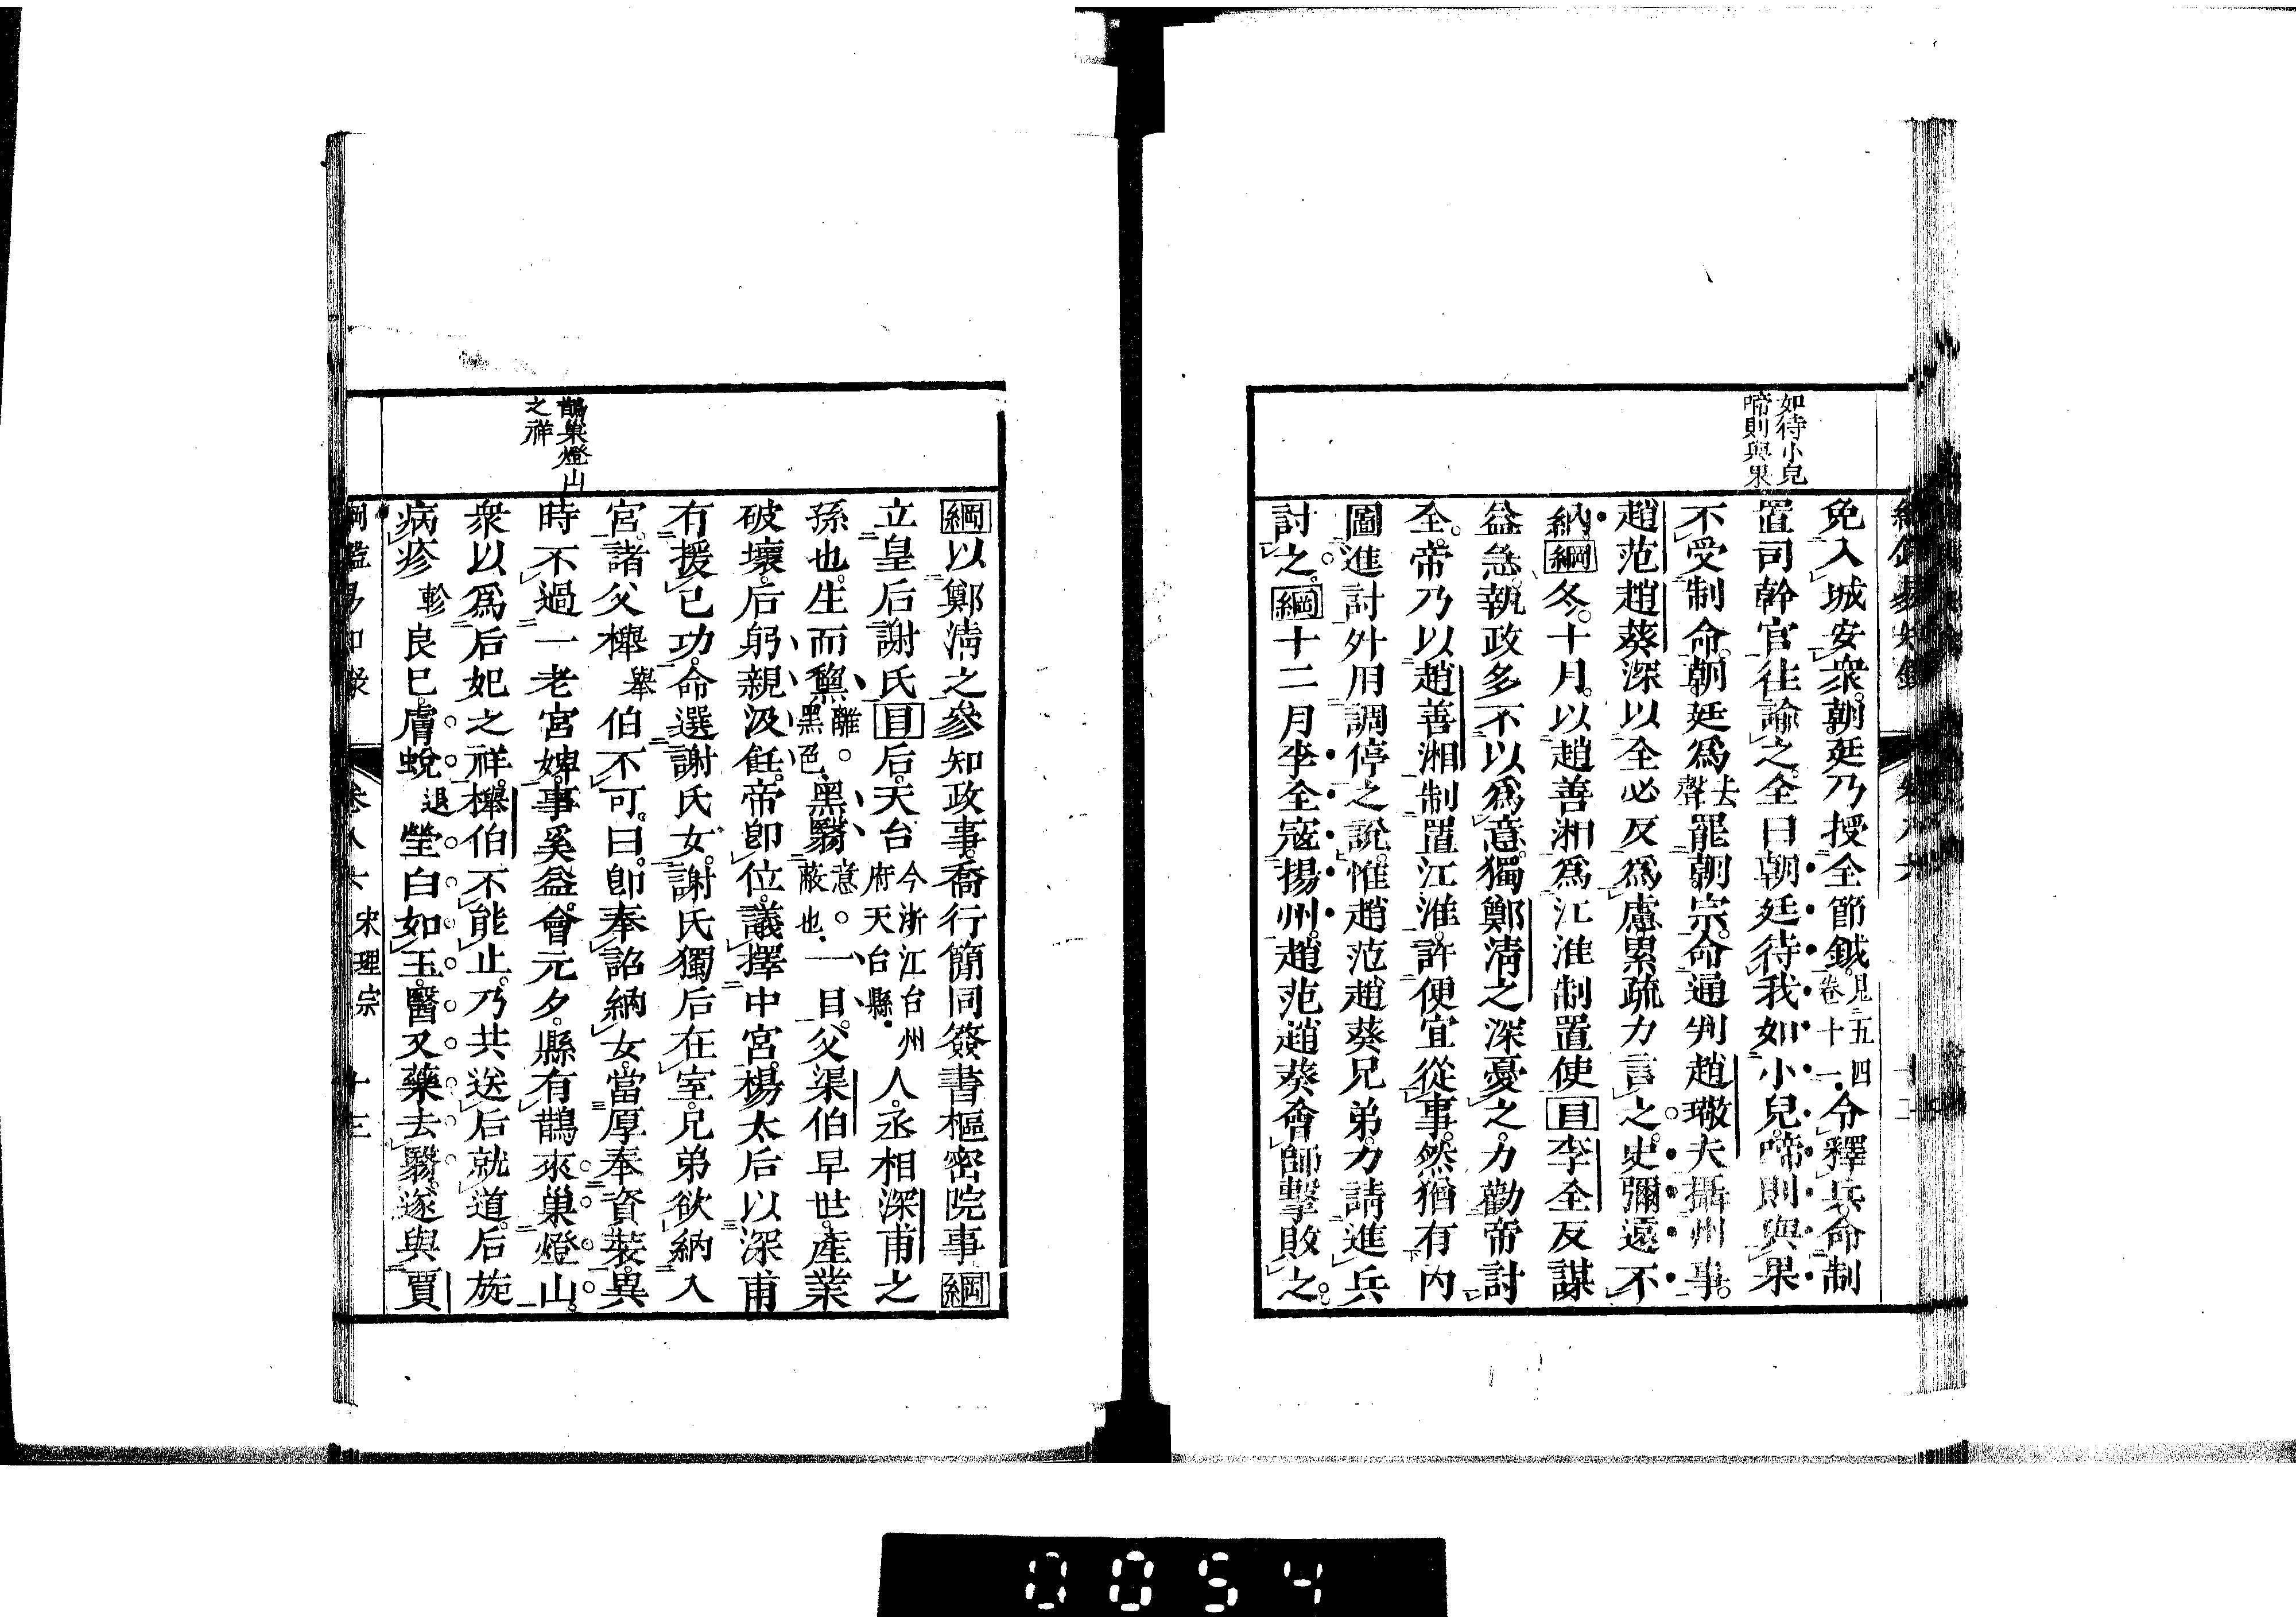 如待小兒
啼則與果
免入城安衆朝廷乃授全節鉞見五四卷十一令釋兵命制
置司幹官往諭之全曰朝廷待我如小兒啼則與果
不受制命朝廷爲去聲罷朝宗命通判趙璥夫攝州事
趙范趙葵深以全必反爲慮累疏力言之史彌遠不
納綱冬十月以趙善湘爲江淮制置使目李全反謀
益急執政多不以爲意獨鄭清之深憂之力勸帝討
全帝乃以趙善湘制置江淮許便宜從事然猶有內
圖進討外用調停之說惟趙范趙葵兄弟力請進兵
討之綱十二月李全寇揚州趙范趙葵會師擊敗之
鵲巢燈山
之祥
綱以鄭清之參知政事喬行簡同簽書樞密院事綱
立皇后謝氏目后天台今浙江台州府天台縣人丞相深甫之
孫也生而黧離黑色黑翳意蔽也一目父渠伯早世產業
破壞后躬親汲飪帝卽位議擇中宮楊太后以深甫
有援己功命選謝氏女謝氏獨后在室兄弟欲納入
宮諸父櫸舉伯不可曰卽奉詔納女當厚奉資裝異
時不過一老宮婢事奚益會元夕縣有鵲來巢燈山
衆以爲后妃之祥櫸伯不能止乃共送后就道后旋
病疹軫良已膚蛻退瑩白如玉醫又藥去翳遂與賈
綱鑑易知錄 卷八六 宋理宗 十三
0054